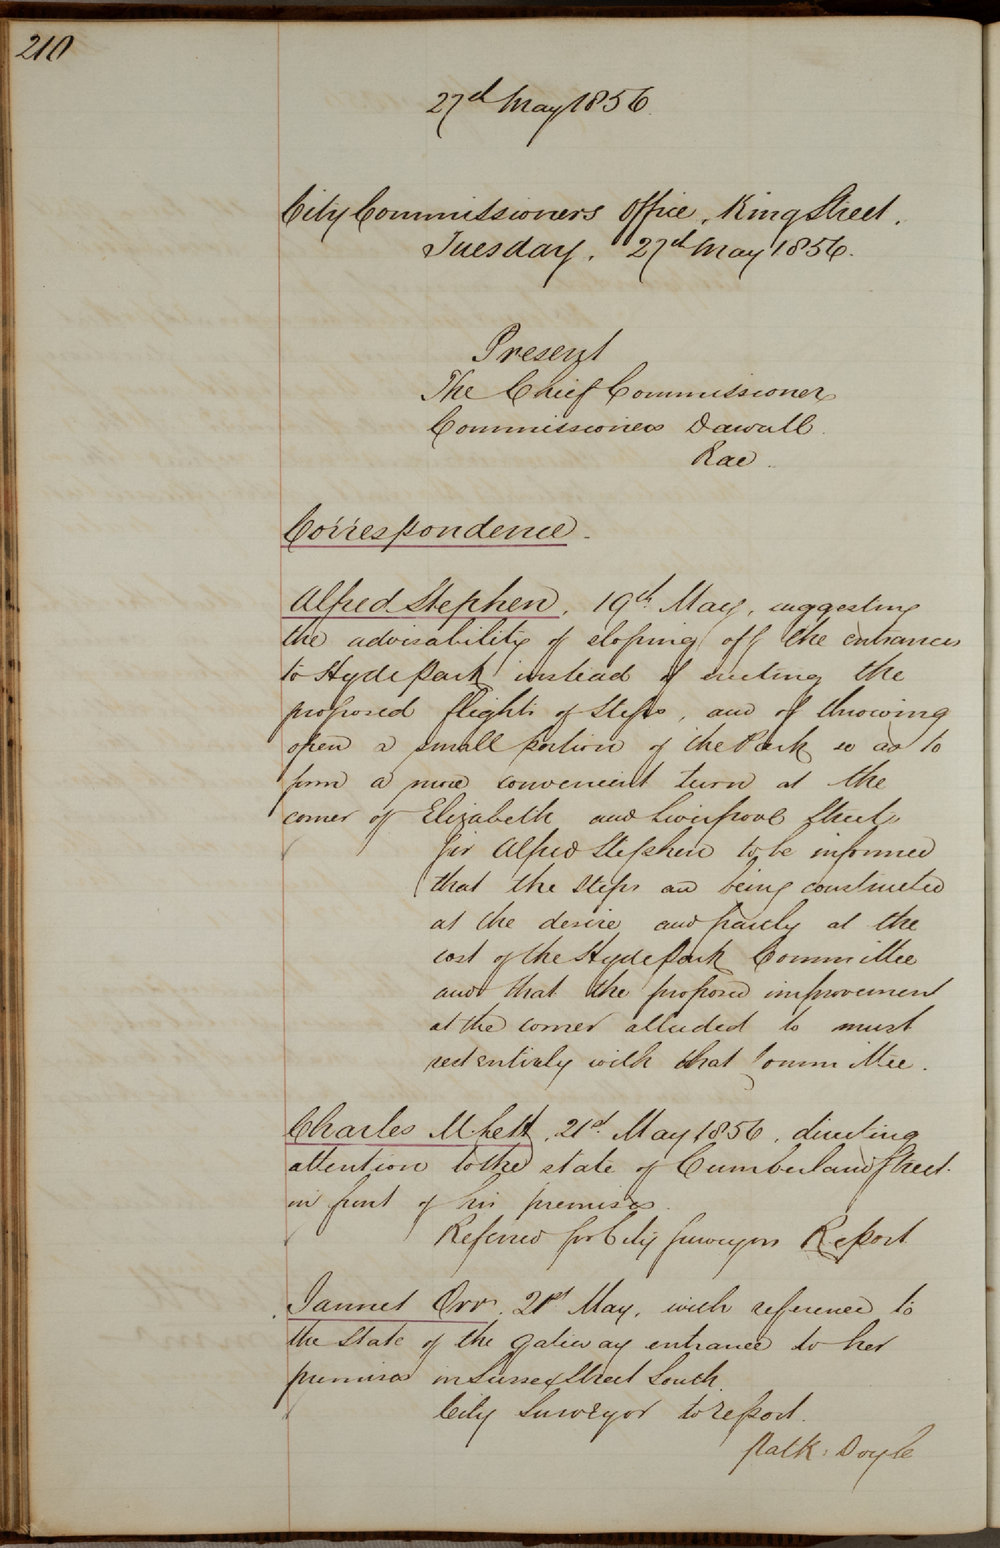 210
27th May 1856.
City Commissioners Office, King Street.
Tuesday, 27th May 1856.
Present
The Chief Commissioner
Commissioners Darvall
Rae.
Correspondence.
Alfred Stephen, 19th May, suggesting
the advisability of sloping off the entrances
to Hyde Park instead of erecting the
proposed flights of steps, and of throwing
open a small portion of the Park so as to
form a more convenient turn at the
corner of Elizabeth and Liverpool Streets
Sir Alfred Stephen to be informed
that the steps are being constructed
at the desire, and partly at the
cost of the Hyde Park Committee
and that the proposed improvement
at the corner alluded to must
rest entirely with that Committee.
Charles, 21st May 1856, directing
attention to the state of Cumberland Street
in front of his premises.
Referred for City Surveyors Report
Jannet Orr, 21st May, with reference to
the State of the gateway entrance to her
premises in Sussex Street South
City Surveyor to report.
Patk: Doyle